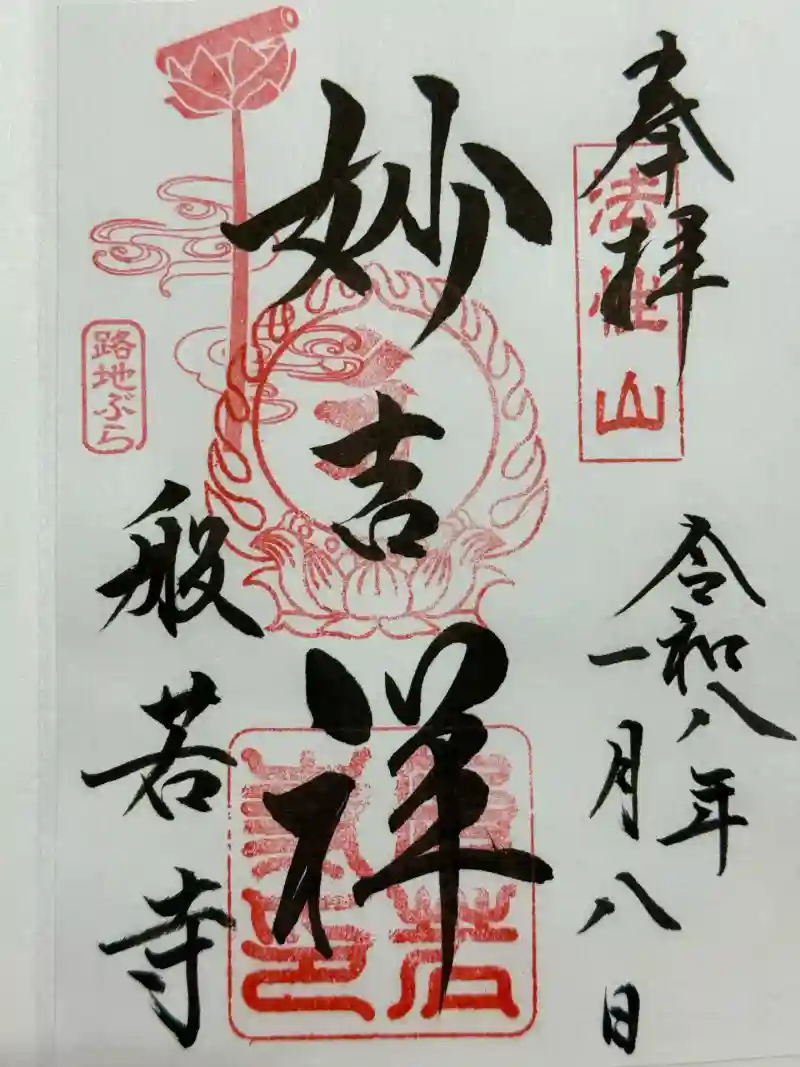 奉拝
法性山
令和八年
一月八日
妙吉祥
般若寺
路地ぶら